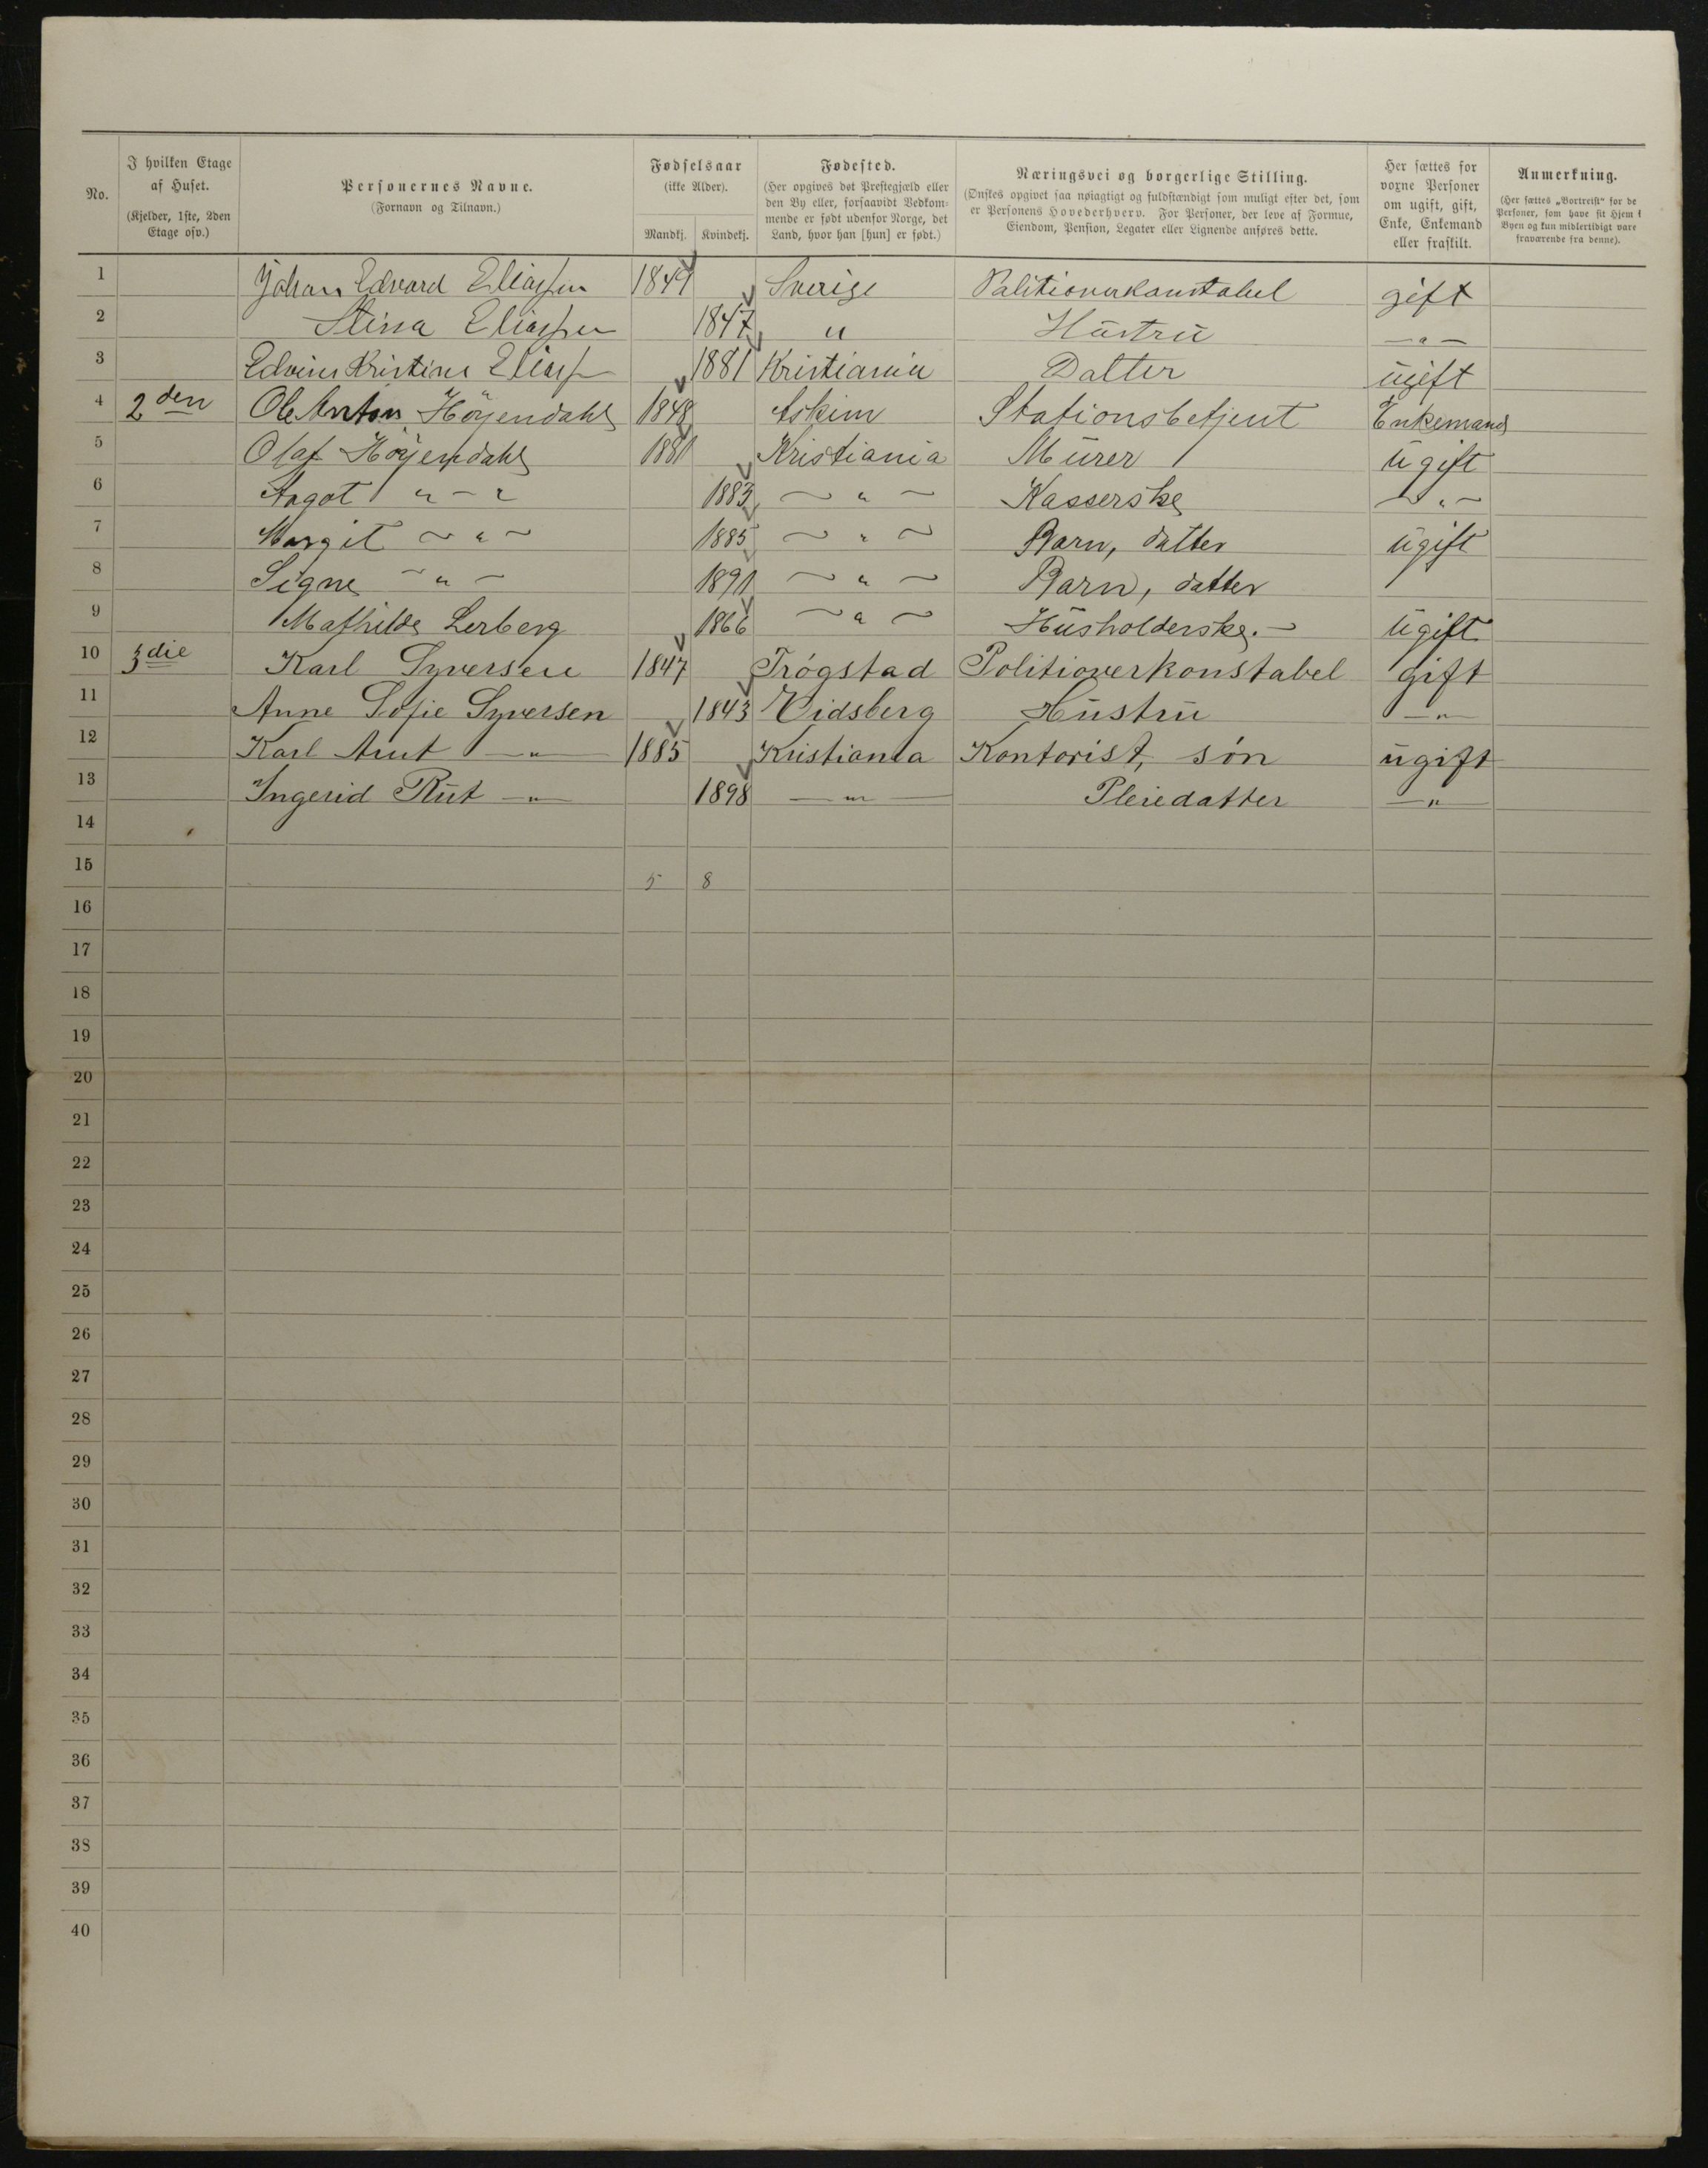 No. | I hvilken Etage af Huset. (Kjelder, 1ste, 2den Etage osv.) | Personernes Navne. (Fornavn og Tilnavn.) | Fødselsaar (ikke Alder). Mandkj. | Kvindekj. | Fødested. (Her opgives det Prestegjæld eller den By eller, forsaavidt Vedkommende er født udenfor Norge, det Land, hvor han [hun] er født.) | Næringsvei og borgerlige Stilling. (Ønskes opgivet saa nøiagtigt og fuldstændigt som muligt efter det, som er Personens Hovederhverv. For Personer, der leve af Formue, Eiendom, Pension, Legater eller Lignende anføres dette. | Her sættes for voxne Personer om ugift, gift, Enke, Enkemand eller fraskilt. | Anmerkning. (Her sættes „Bortreist“ for de Personer, som have sit Hjem i Byen og kun midlertidigt vare fraværende fra denne).
1 Johan Edvard Eliassen 1849 Sverige Politioverkonstabel gift
2 Stina Eliassen 1847 " Hustru — " —
3 Edvine Kristine Eliass 1881 Kristiania Datter ugift
4 2den Ole Anton Höyendahl 1848 Askim Stationsbetjent Enkemand
5 Olaf Höyendahl 1880 Kristiania Murer ugift
6 Aagot " — " 1883 — " — Kasserske — " —
7 Margit — " — 1885 — " — Barn, datter ugift
8 Signe — " — 1891 — " — Barn, datter
9 Mathilde Lerberg 1866 — " — Husholderske. — ugift
10 3die Karl Syversen 1847 Trógstad Politioverkonstabel gift
11 Anne Sofie Syversen 1843 Eidsberg Hustru — " —
12 Karl Arnt — " — 1885 Kristiania Kontorist, són ugift
13 Ingerid Rut — " — 1898 — " — Pleiedatter — " —
14
15 5 8
16
17
18
19
20
21
22
23
24
25
26
27
28
29
30
31
32
33
34
35
36
37
38
39
40